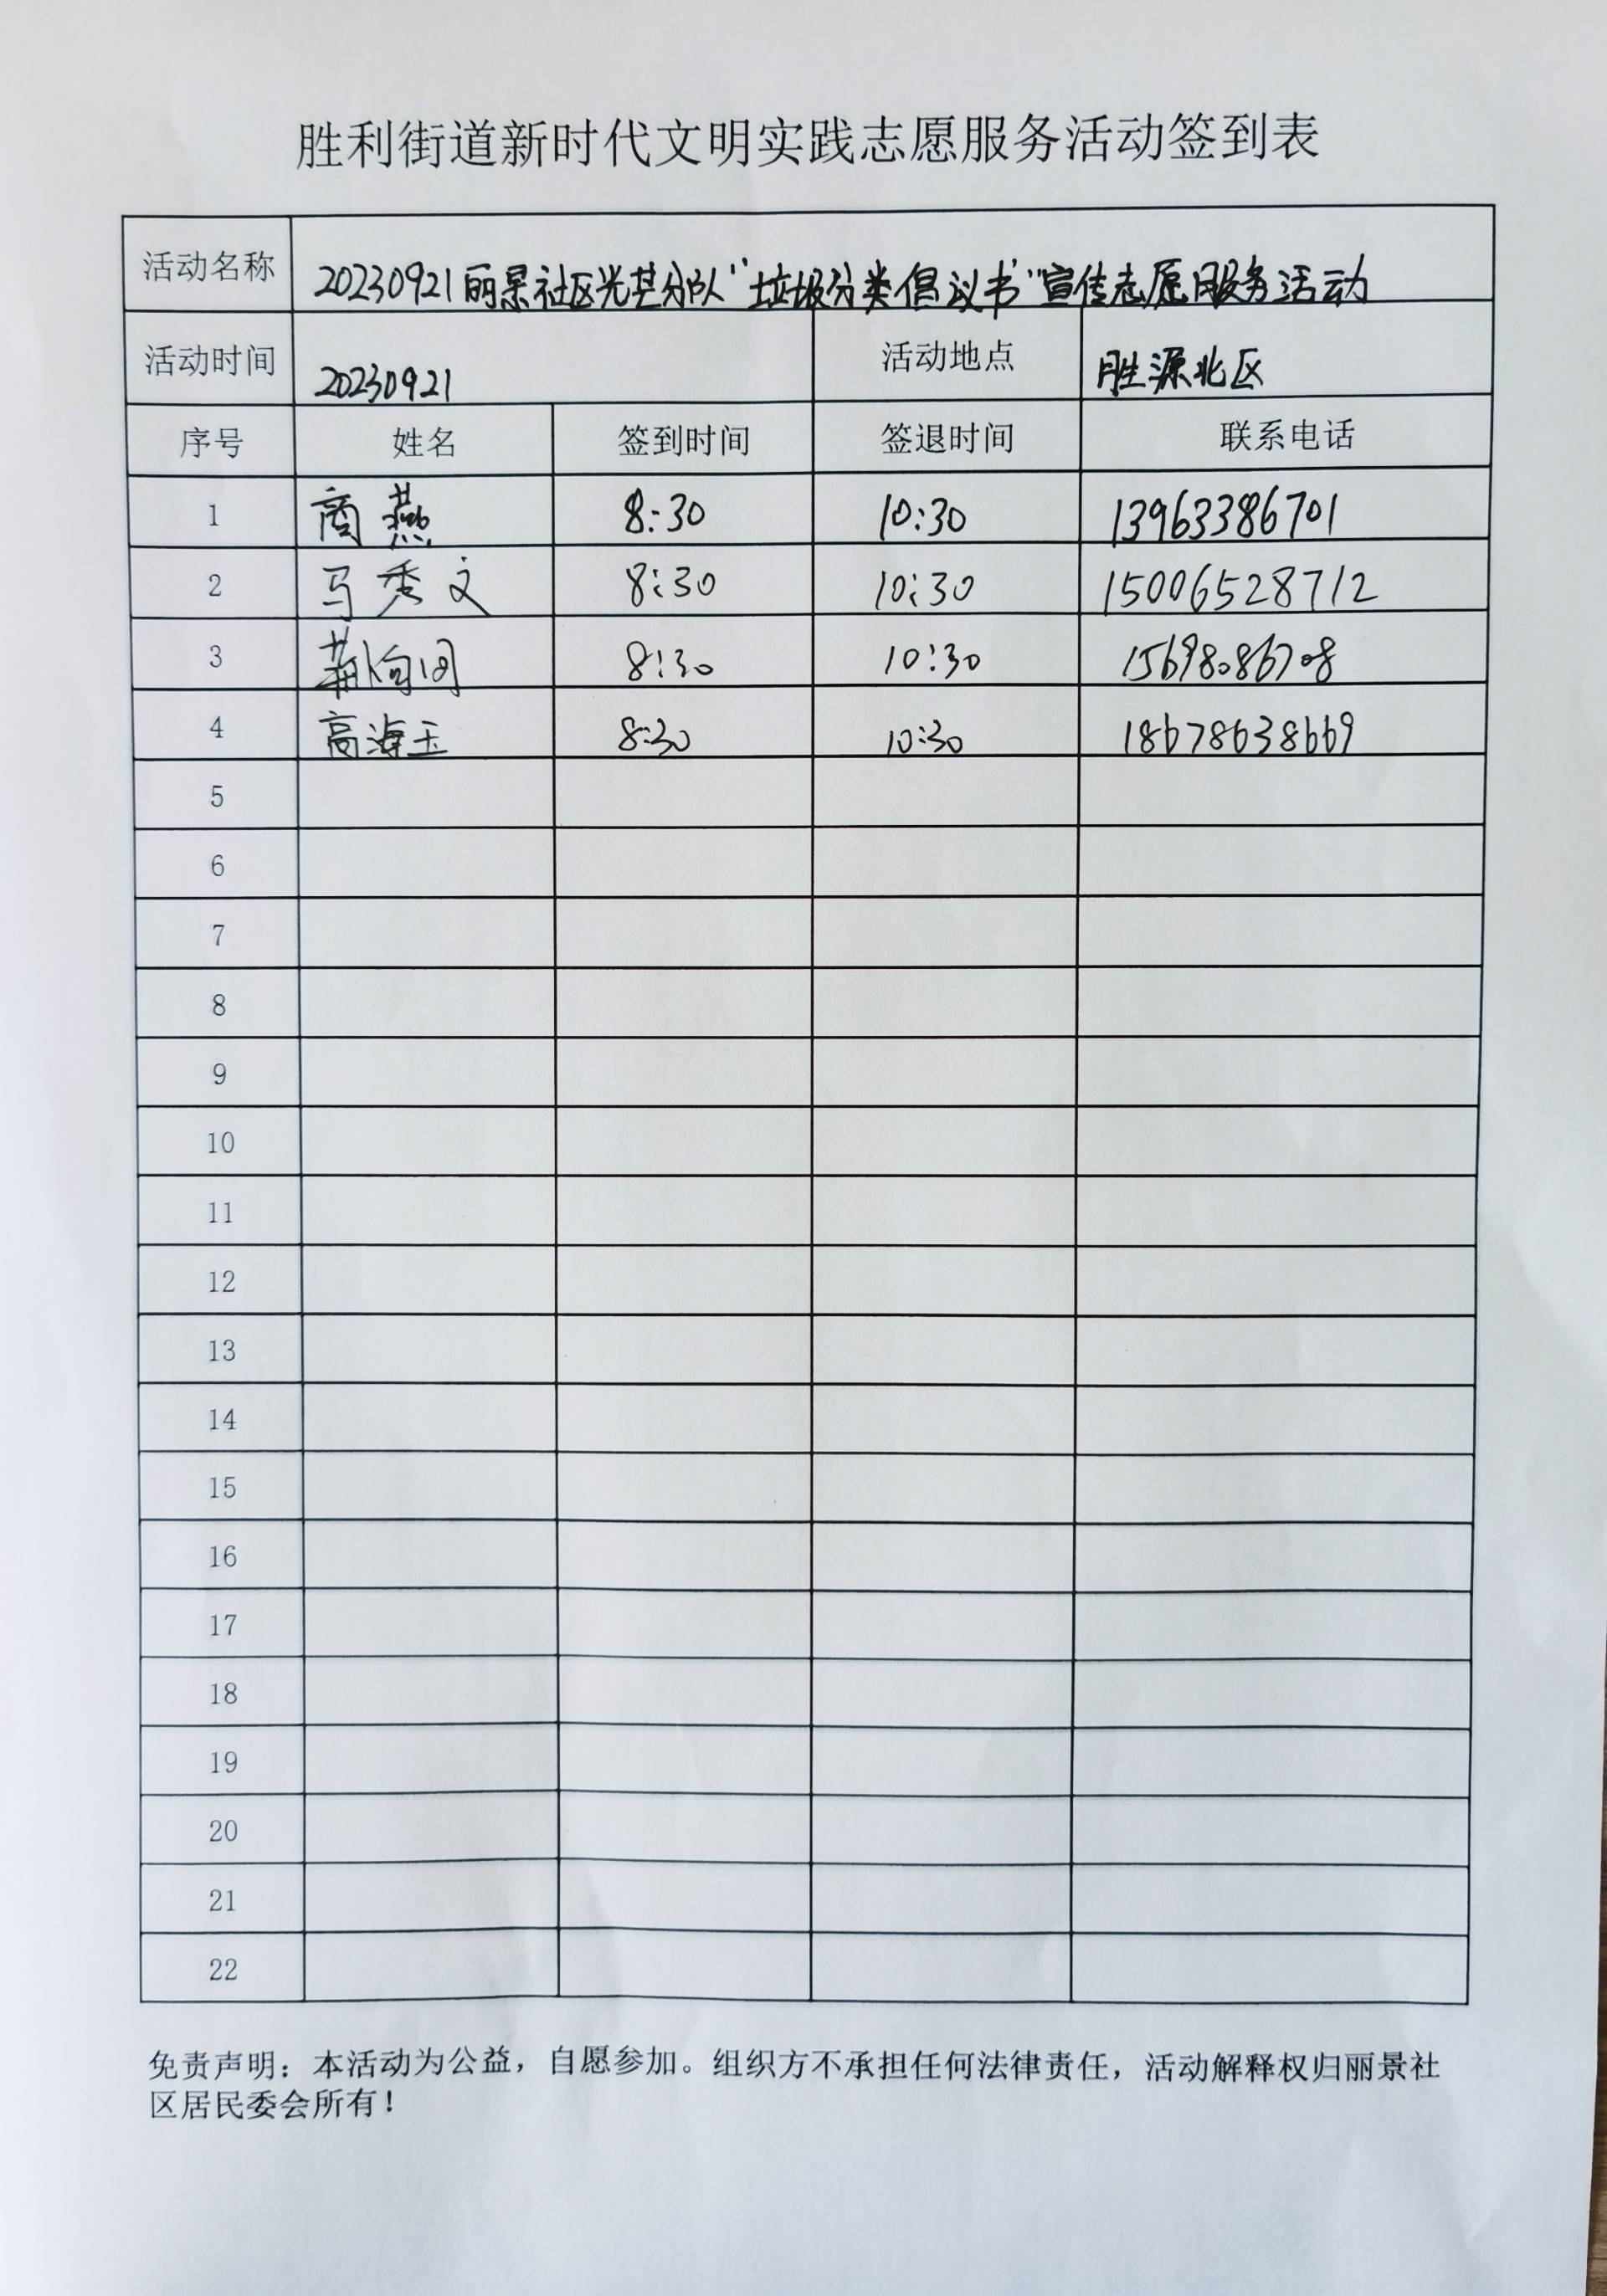 胜利街道新时代文明实践志愿服务活动签到表
活动名称 20230921丽景社区光芒分队“垃圾分类倡议书”宣传志愿服务活动
活动时间 20230921 活动地点 胜源北区
序号 姓名 签到时间 签退时间 联系电话
1 商燕 8:30 10:30 13963386701
2 马秀文 8:30 10:30 15006528712
3 8:30 10:30 15698086708
4 高海玉 8:30 10:30 18678638669
5
6
7
8
9
10
11
12
13
14
15
16
17
18
19
20
21
22
免责声明：本活动为公益，自愿参加。组织方不承担任何法律责任，活动解释权归丽景社
区居民委会所有！